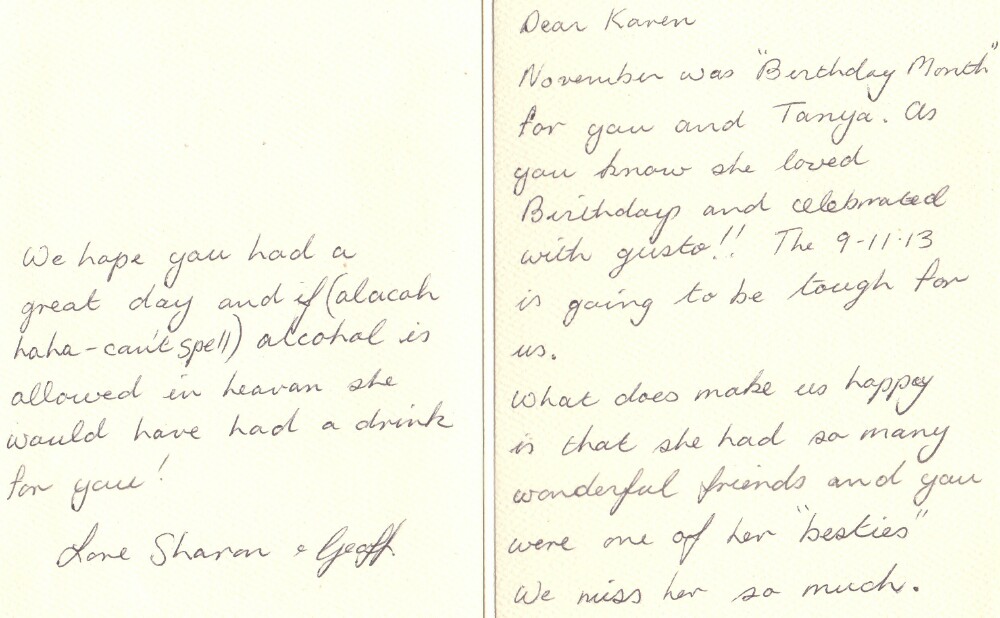 Dear Karen
November was "Birthday Month"
for you and Tanya. As
you know she loved
Birthdays and celebrated
with gusto!! The 9-11-13
is going to be tough for
us.
What does make us happy
is that she had so many
wonderful friends and you
were one of her "besties"
We miss her so much.
We hope you had a
great day and if (alacoh
haha-can't spell) alcohol is
allowed in heavan she
would have had a drink
for you!
Love Sharon & Geoff